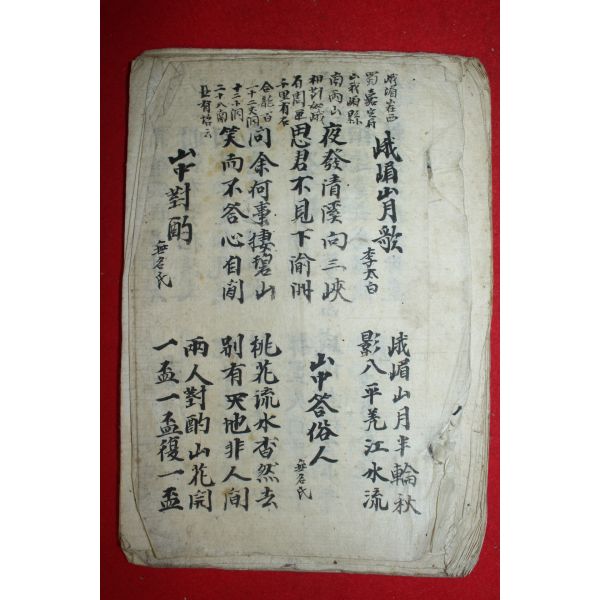 峨嵋山月歌
李太白
蜀嘉定府
峨嵋縣
南兩山
峨嵋山月半輪秋
影入平羌江水流
夜發清溪向三峽
思君不見下渝州
山中答俗人
無名氏
千里有名
二十八南
問余何事棲碧山
笑而不答心自閑
桃花流水杳然去
別有天地非人間
山中對酌
無名氏
兩人對酌山花開
一盃一盃復一盃